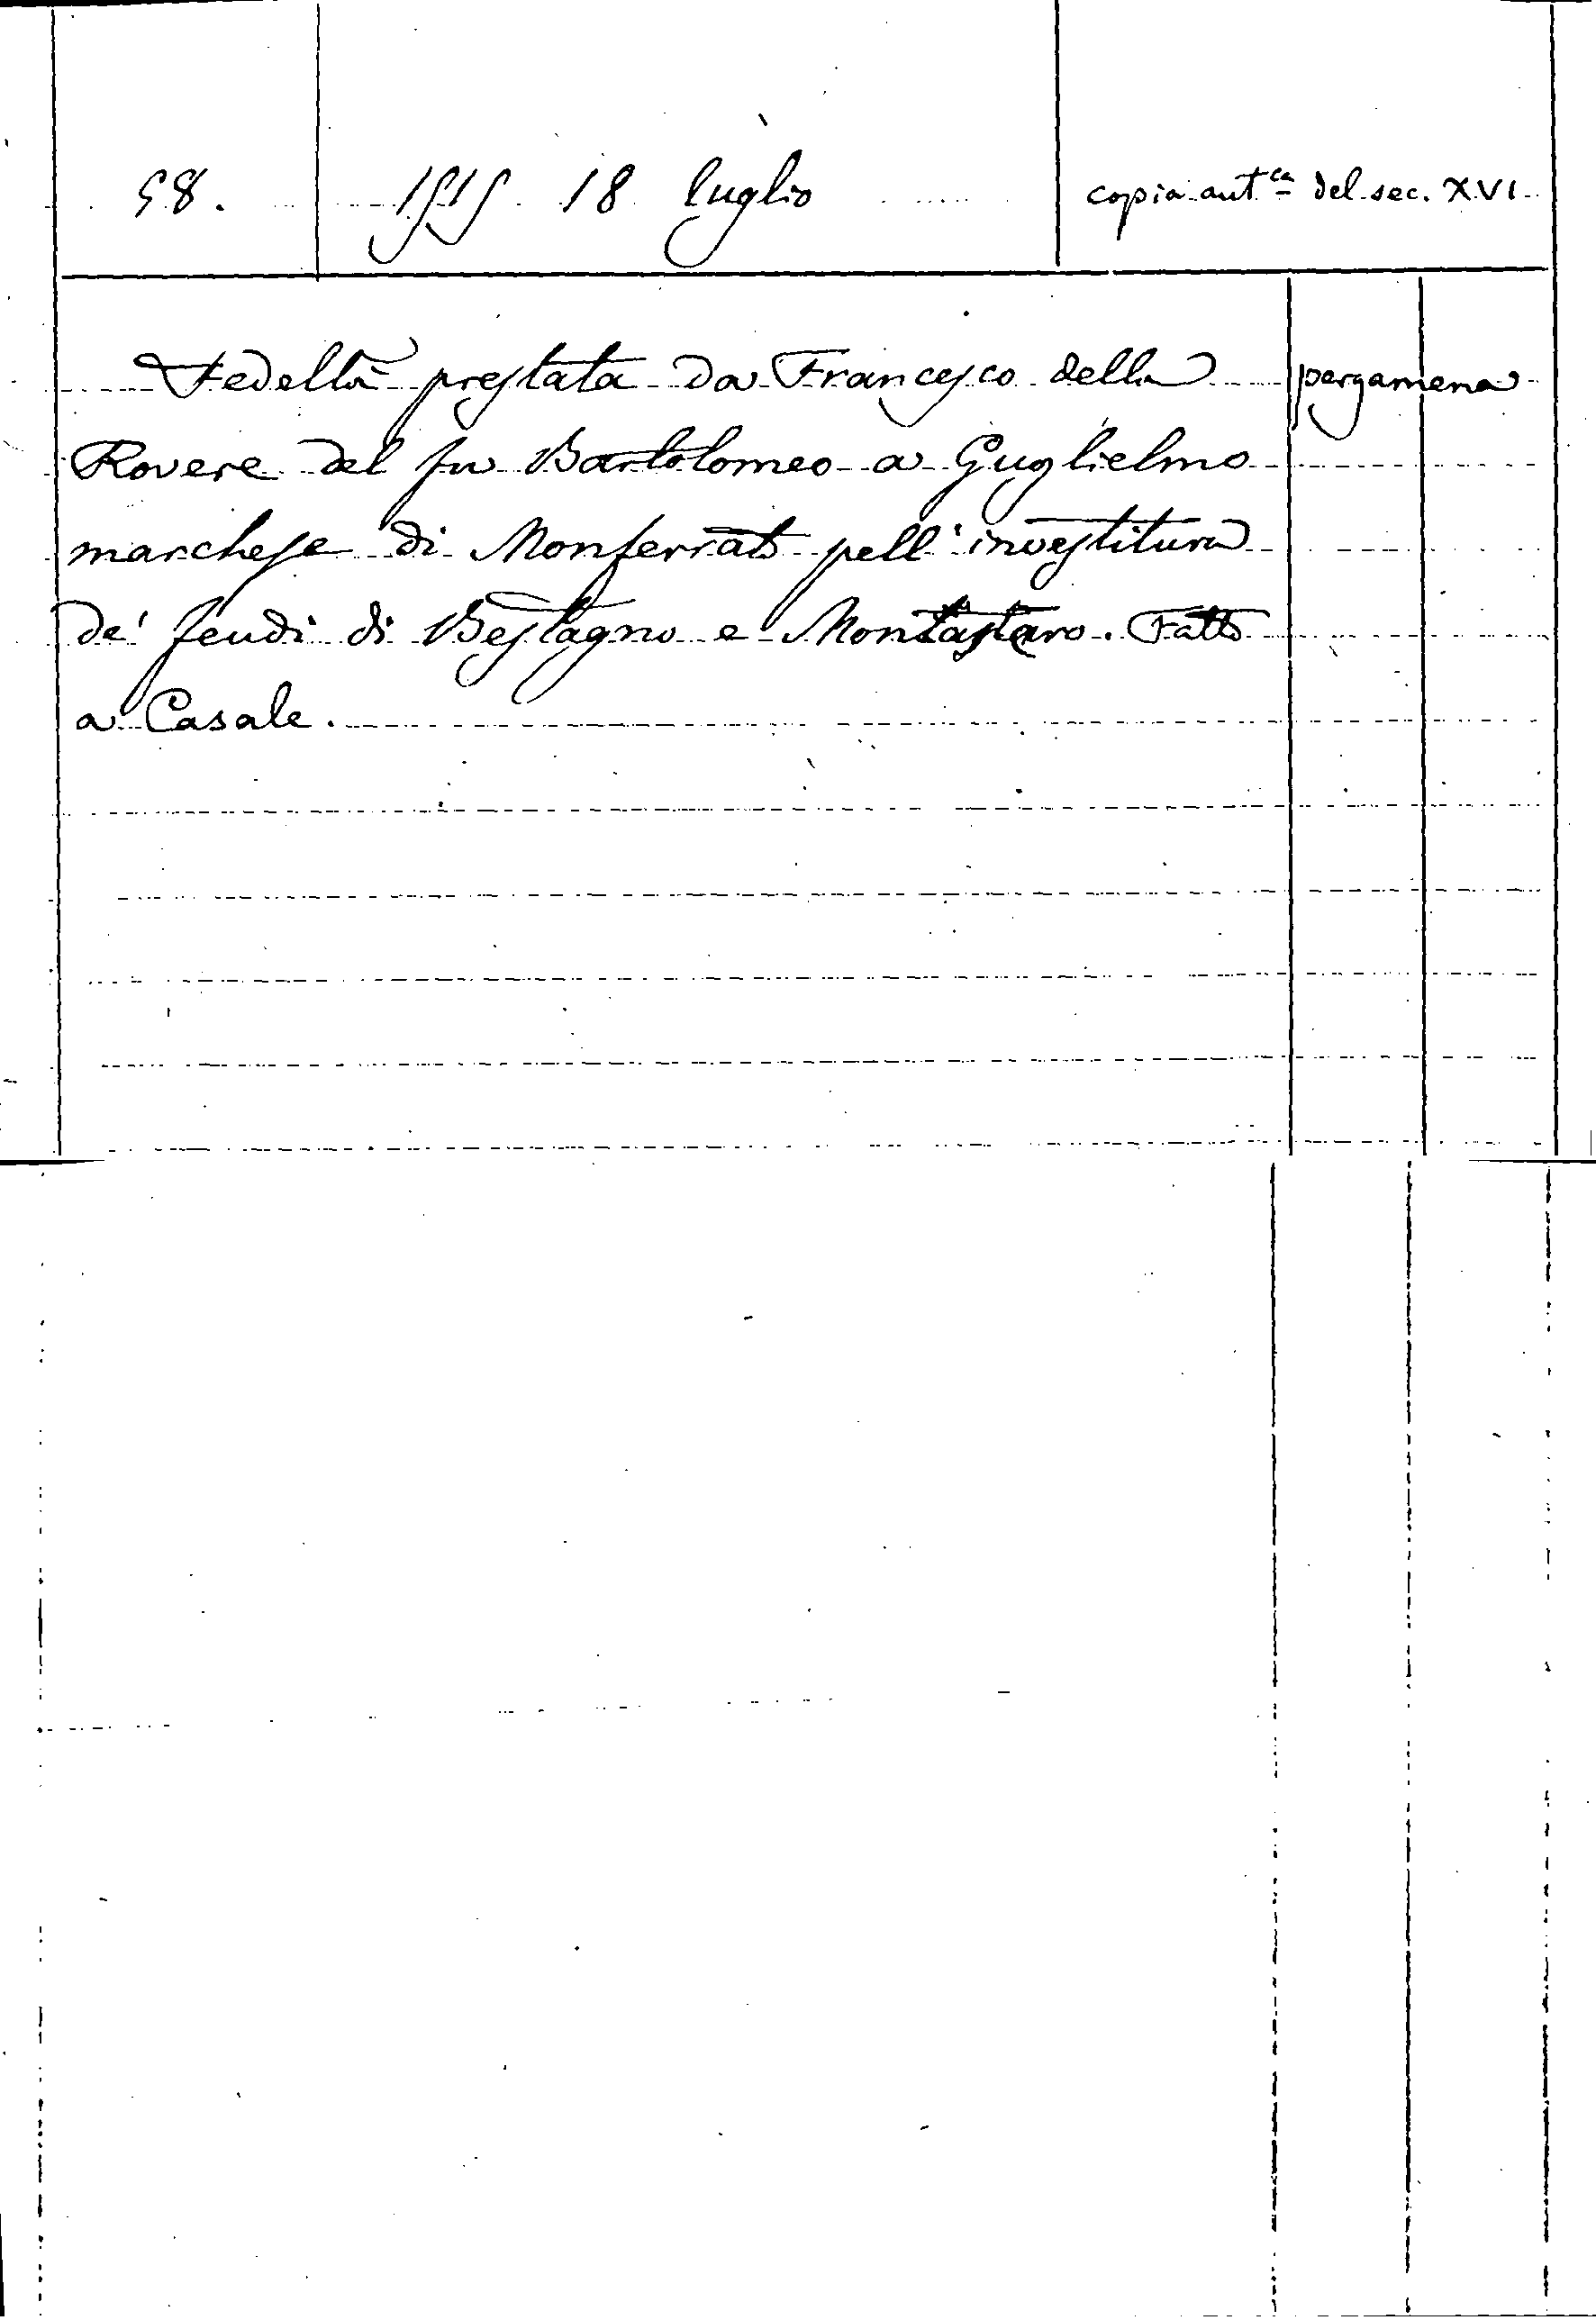 58. 1515 18 luglio copia aut.ca del sec. XVI
Fedeltà prestata da Francesco della pergamena
Rovere del fu Bartolomeo a Guglielmo
marchese di Monferrato pell'investitura
de' feudi di Bestagno e Montastaro. Fatto
a Casale.